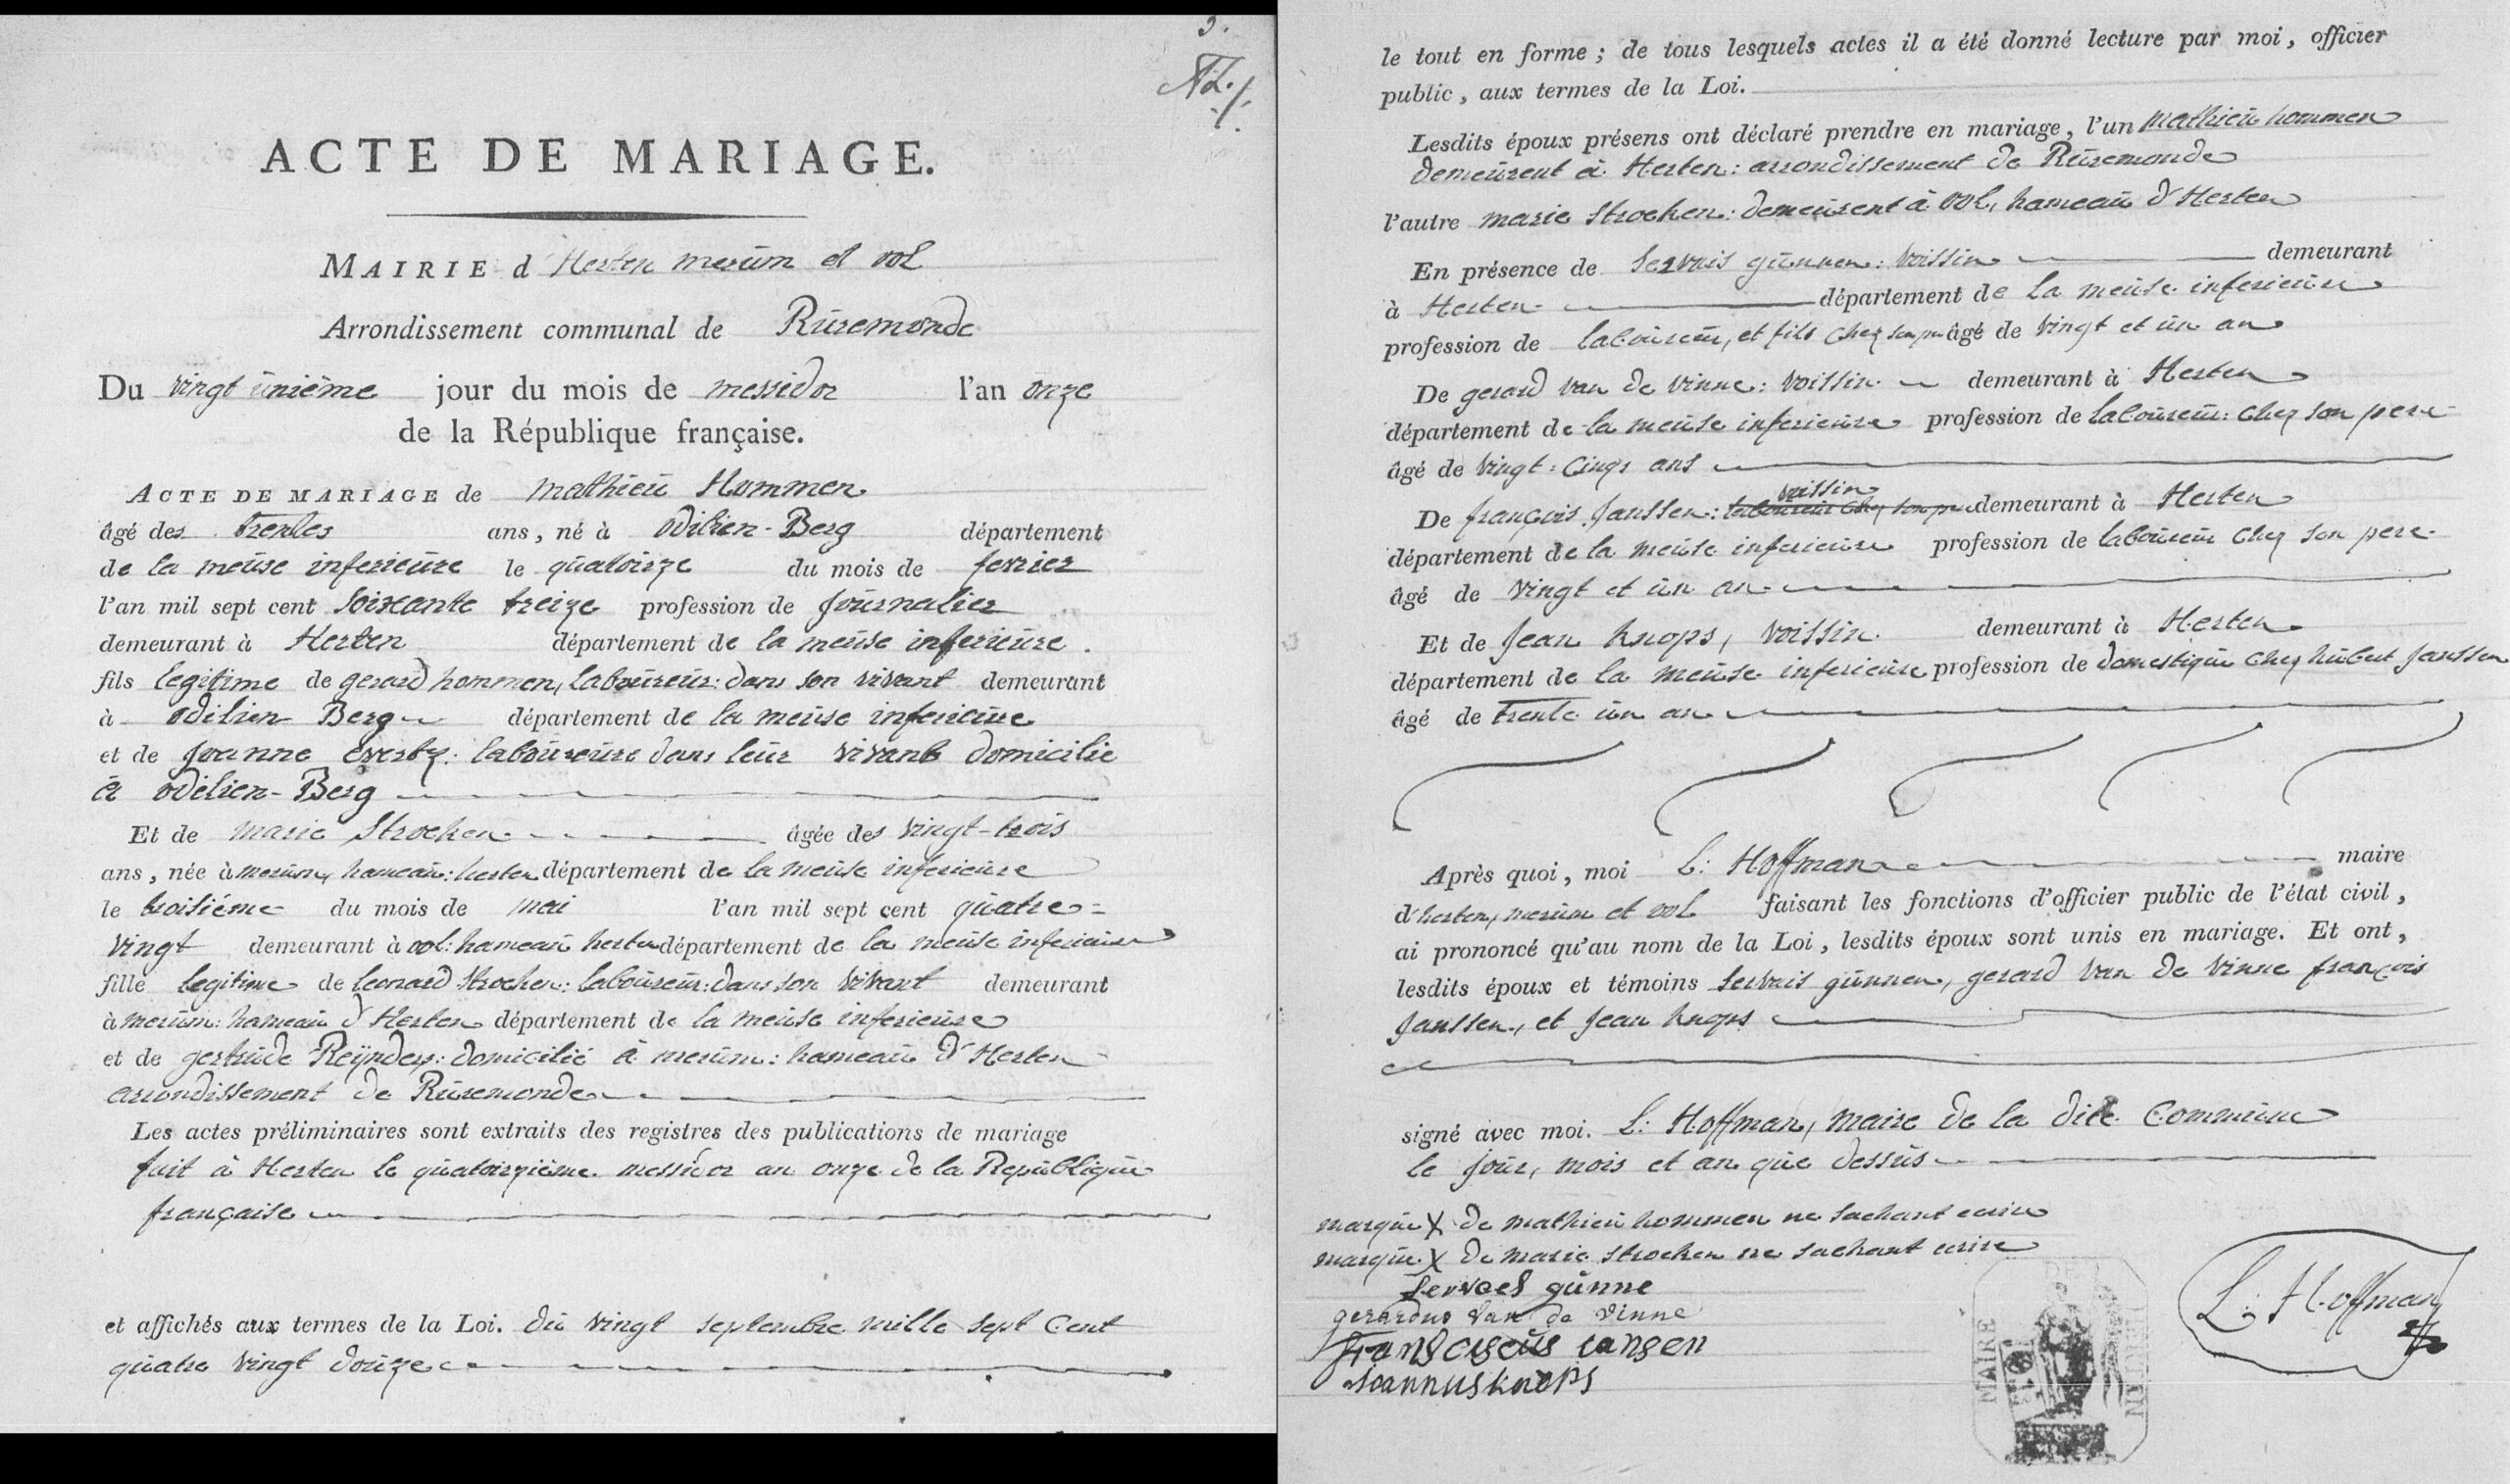 3.
N.º 1.
ACTE DE MARIAGE.
MAIRIE d'Herten merüm et vol
Arrondissement communal de Rüremonde
Du vingt ünième jour du mois de messidor l'an onze
de la République française.
ACTE DE MARIAGE de mathieü Hommen
âgé des trentes ans, né à odilien-Berg département
de la meüse inferieüre le qüatoirze du mois de fevrier
l'an mil sept cent soixante treize profession de joürnalier
demeurant à Herten département de la meüse inferieüre.
fils legitime de gerard hommen, laboüreür: dans son vivant demeurant
à odilien Berg département de la meüse inferieüre
et de joanne evertz: laboüreüre dans leür vivant domicilie
à odilien-Berg
Et de marie Strocken âgée des vingt-trois
ans, née à merüm, hameaü: herten département de la meüse inferieüre
le troisiéme du mois de mai l'an mil sept cent qüatre=
vingt demeurant à vol: hameaü herten département de la meüse inferieüre
fille legitime de leonard Strocken: laboüreür: dans son vivant demeurant
à merüm: hameaü d'Herten département de la meüse inferieüre
et de gertrüde Reÿnders: domicilié à merüm: hameaü d'Herten
arrondissement de Rüremonde
Les actes préliminaires sont extraits des registres des publications de mariage
fait à Herten le qüatoirzième messidor an onze de la Repübliqüe
française
et affichés aux termes de la Loi. dü vingt septembre mille sept cent
qüatre vingt doüze
le tout en forme; de tous lesquels actes il a été donné lecture par moi, officier
public, aux termes de la Loi.
Lesdits époux présens ont déclaré prendre en mariage, l'un mathieü hommen
demeürent à Herten: arrondissement de Rüremonde
l'autre marie Strocken: demeürent à vol, hameaü d'Herten
En présence de servais günnen: voissin demeurant
à Herten département de la meüse inferieüre
profession de laboüreür, et fils chez son pere âgé de vingt et ün an
De gerard van de vinne: voissin demeurant à Herten
département de la meüse inferieüre profession de laboüreür: chez son pere
âgé de vingt: cinqs ans
voissin
De françois Janssen: laboüreür chez son pere demeurant à Herten
département de la meüse inferieüre profession de laboüreür chez son pere
âgé de vingt et ün an
Et de Jean knops, voissin demeurant à Herten
département de la meüse inferieüre profession de domestiqüe chez hübert Janssen
âgé de trente ün an
Après quoi, moi L: Hoffman maire
d'herten, merüm et vol faisant les fonctions d'officier public de l'état civil,
ai prononcé qu'au nom de la Loi, lesdits époux sont unis en mariage. Et ont,
lesdits époux et témoins servais günnen, gerard van de vinne françois
Janssen, et Jean knops
signé avec moi. L: Hoffman, maire de la dite commüne
le joür, mois et an qüe dessüs
marqüe X de mathieü hommen ne sachant ecrire
marqüe X de marie strocken ne sachant ecrire
servaes günne
gerardus van de vinne
fransciscüs iansen
Joannus knops
L: Hoffman
MAIRE